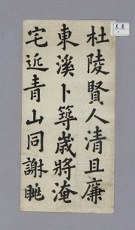 杜陵賢人清且廉
東溪卜築歲將淹
宅近青山同謝眺